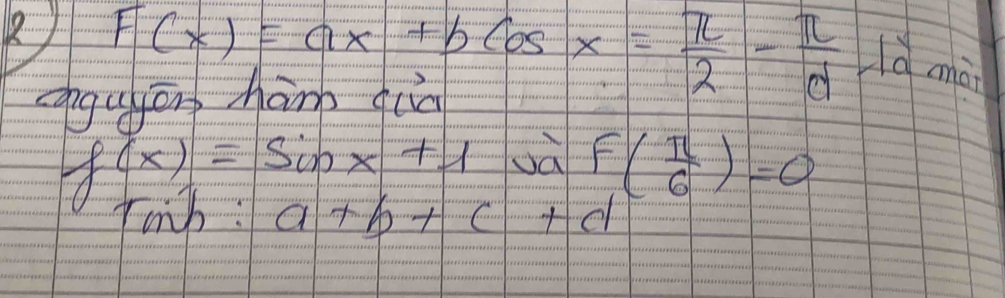 2) F(x) = ax + b cos x = π/2 - π/d là một
nguyên hàm của
f(x) = sin x + 1 và F(π/6) = 0
Tính : a + b + c + d